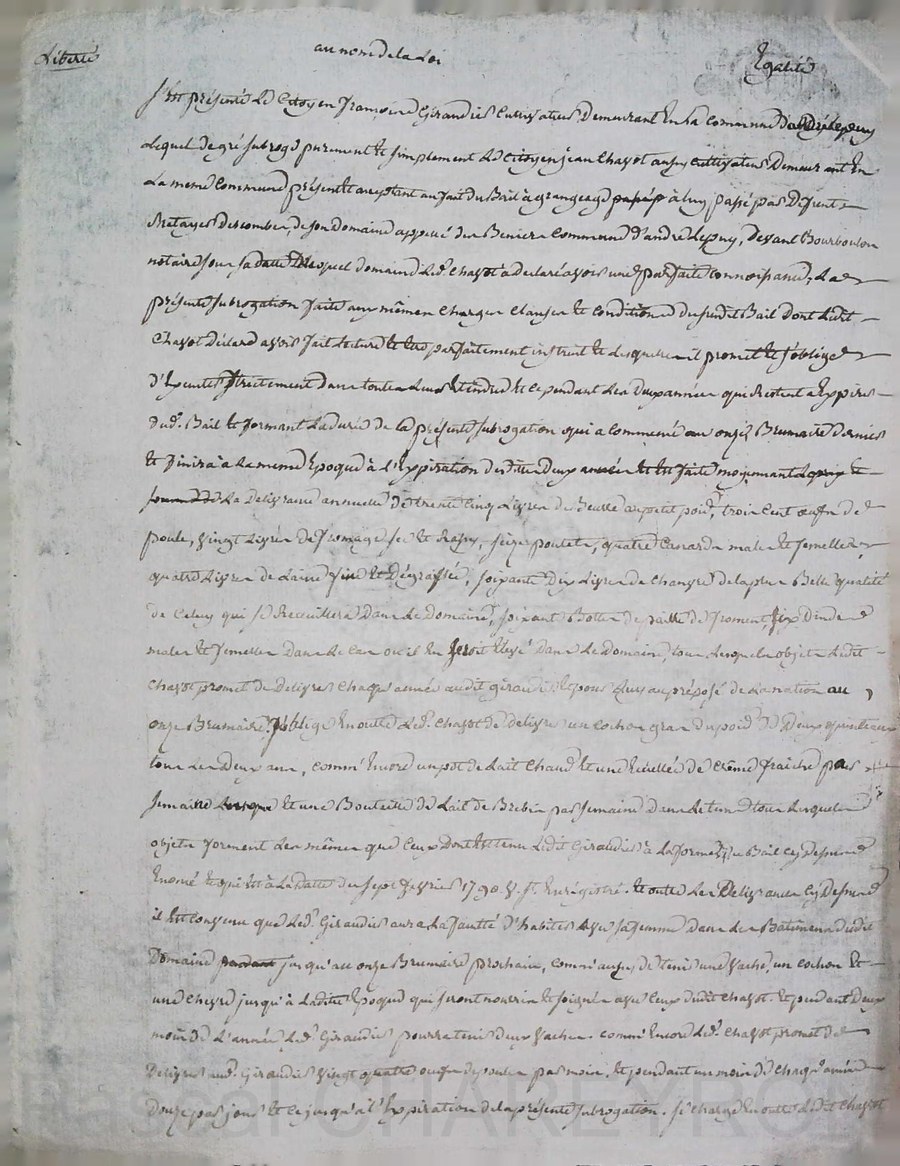 Liberté au nom de la Loi Egalité
S'est présenté Le Citoyen françois Giraudier Cultivateur Demeurant En la Commune d'andrélepuy
Lequel de gré subroge purement et simplement Le Citoyen jean Chazot aussy cultivateur Demeurant En
La meme Commune présent et acceptant au fait du Bail à grangeage passé à luy passé par Difunt
Metayer Descombe, de son domaine appellé Commune d'andré Lepuy, Devant Bourboulon
notaire sous sa datte Lequel domaine Led. Chazot a declaré avoir une parfaite connoissance, La
présente subrogation faite aux mêmes charges clauses et conditions du susdit Bail Dont Ledit
Chazot Déclare avoir fait Lecture et être parfaitement instruit et desquelles il promet et s'oblige
d'Executer strictement dans toute leur étendue et ce pendant Les Deux années qui Restent a Expirer
dud. Bail et formant La durée de la présente subrogation qui a commencé au onze Brumaire Dernier
et finira à La meme Epoque à L'Expiration desdittes Deux années et est faite moyennant Le prix et
somme de La Délivrance annuelle de trente cinq Livres de Beurre au petit poid, trois cent oeufs de
poule, vingt Livres de fromage sec et Rassy, seize poulets, quatre Canards males et femelles
quatre Livres de Laine fine et Dégraissée, soixante Dix Livres de Chanvre de la plus Belle qualité
de Celuy qui se Recueillera Dans Le Domaine, soixante Bottes de paille de froment, six Dindes
males et femelles Dans Le Cas où il En seroit Elevé Dans Le Domaine, tous Lesquels objets Ledit
Chazot promet de Delivrer Chaque année audit giraudier et pour Luy au préposé de La nation au
onze Brumaire, s'oblige En outre Led. Chazot de Delivrer un cochon gras du poid de Deux quinteaux
tous Les Deux ans, comm' Encore un pot de Lait Chaud et une Ecuellée de crême fraiche par
semaine Lorsque et une Bouteille de Lait de Brebis par semaine Dans Le tems tous Lesquels
objets forment Les mêmes que Ceux Dont Est tenu Ledit Giraudier à La forme du Bail cy Dessus
Enoncé et qui est à La datte du sept fevrier 1790. V. St. Enregistré. et outre Les Delivrances cy Dessus
il Est convenu que Led. Giraudier aura La faculté D'habiter avec sa femme Dans Les Batimens dudit
Domaine pendant jusqu'au onze Brumaire prochain, comm' aussy de tenir une Vache, un cochon et
une chevre jusqu'à Ladite Epoque qui seront nourris et soignés avec ceux dudit Chazot. Et pendant Deux
mois de L'année Led. Giraudier pourra tenir deux Vaches. comm' Encore Led. Chazot promet de
Delivrer aud. Giraudier vingt quatre oeufs de poules par mois, et pendant un mois de Chaque année
douze par jour et ce jusqu'à L'Expiration de la présente subrogation. se charge En outre Ledit Chazot
Pascal CHAREYRON